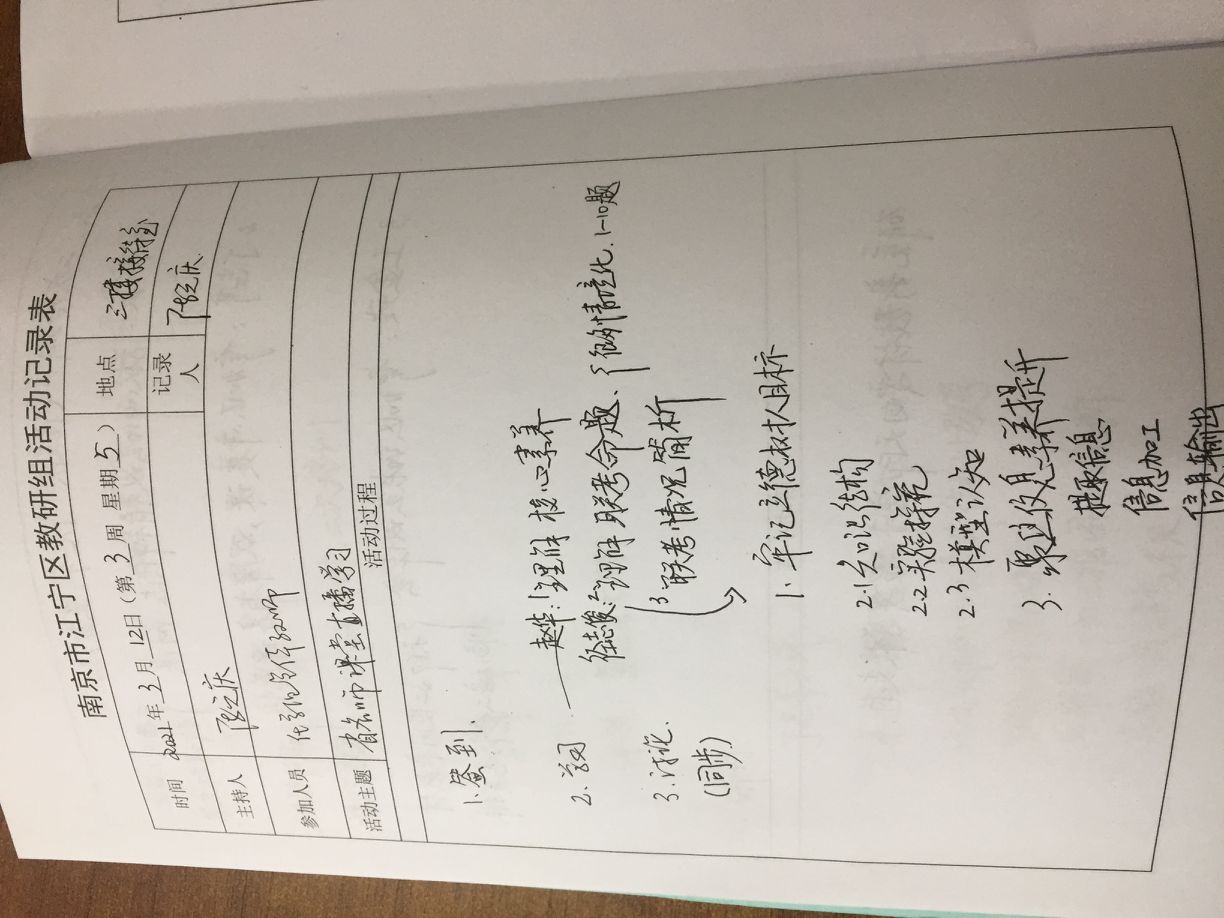 南京市江宁区教研组活动记录表
时间 2021年3月12日(第3周 星期5) 地点 三楼接待室
主持人 陆庆 记录人 陆庆
参加人员 化学组全体教师
活动主题 省名师课堂直播学习
活动过程
1.签到.
2.学习 赵华:1理解 核心素养
徐志俊:2理解 联考命题. {很多情境化. 1-10题
3.讨论. 3联考情况简析
(同步)
1. 牢记立德树人目标
2.1 知识结构
2.2 实验探究
2.3 模型认知
3. 聚焦信息素养提升
提取信息
信息加工
信息输出